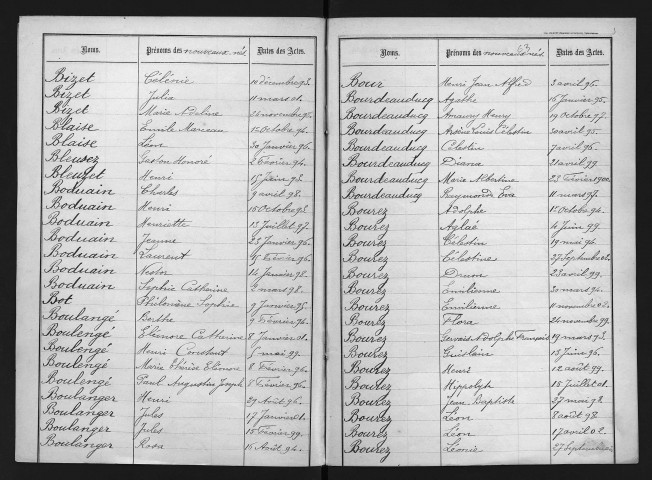 Noms. Prénoms des nouveaux nés Dates des Actes.
Bizet Célénie 10 décembre 93.
Bizet Julia 11 mars 01.
Bizet Marie Adeline novembre 95
Blaise Emile Marceau 15 Octobre 94.
Blaise Léon 30 Janvier 96.
Bleusez Gaston Honoré 2 Février 94.
Bleuzet Henri 15 Juin 93.
Boduain Charles 9 avril 98.
Boduain Henri 18 Octobre 93.
Boduain Henriette 13 Juillet 97.
Boduain Jeanne 23 Janvier 96.
Boduain Laurent 15 Février 96.
Boduain Nestor 14 Janvier 98.
Boduain Sophie Catherine mars 98.
Bot Philomène Sophie 9 Janvier 95
Boulangé Berthe 9 Février 94.
Boulengé Eléonore Catherine 8 Janvier 01.
Boulengé Henri Constant 5 mai 99.
Boulengé Marie Thérèse Eléonore 8 Février 96.
Boulengé Paul Augustin Joseph 8 Février 96.
Boulanger Henri 29 Août 96.
Boulanger Jules 17 Janvier 01.
Boulanger Jules 15 Février 99.
Boulanger Rosa 15 Août 94.
63
Noms. Prénoms des nouveaux nés. Dates des Actes.
Bour Henri Jean Alfred 3 avril 96.
Bourdeauducq Agathe 15 Janvier 95.
Bourdeauducq Amaury Henry 19 Octobre 98.
Bourdeauducq Arsène Louis Célestin 30 avril 95.
Bourdeauducq Célestin 7 avril 96.
Bourdeauducq Diana 21 avril 99.
Bourdeauducq Marie Albertine 22 Février 1900.
Bourdeauducq Raymonde Eva 11 mars 97.
Bourez Adolphe 12 Octobre 94.
Bourez Aglaé 4 Juin 99.
Bourez Célestin 19 mai 94.
Bourez Célestine 27 Septembre 02.
Bourez 23 avril 99.
Bourez Emilienne 30 mars 94.
Bourez Emilienne 11 novembre 02.
Bourez Flora 24 novembre 99.
Bourez Gervais Adolphe François 19 mars 93.
Bourez Guislain 15 Juin 96.
Bourez Henri 12 août 99.
Bourez Hippolyte 15 Juillet 01.
Bourez Jean Baptiste 27 mai 98
Bourez Léon 8 août 98.
Bourez Léon 17 avril 02.
Bourez Léonie 27 Septembre